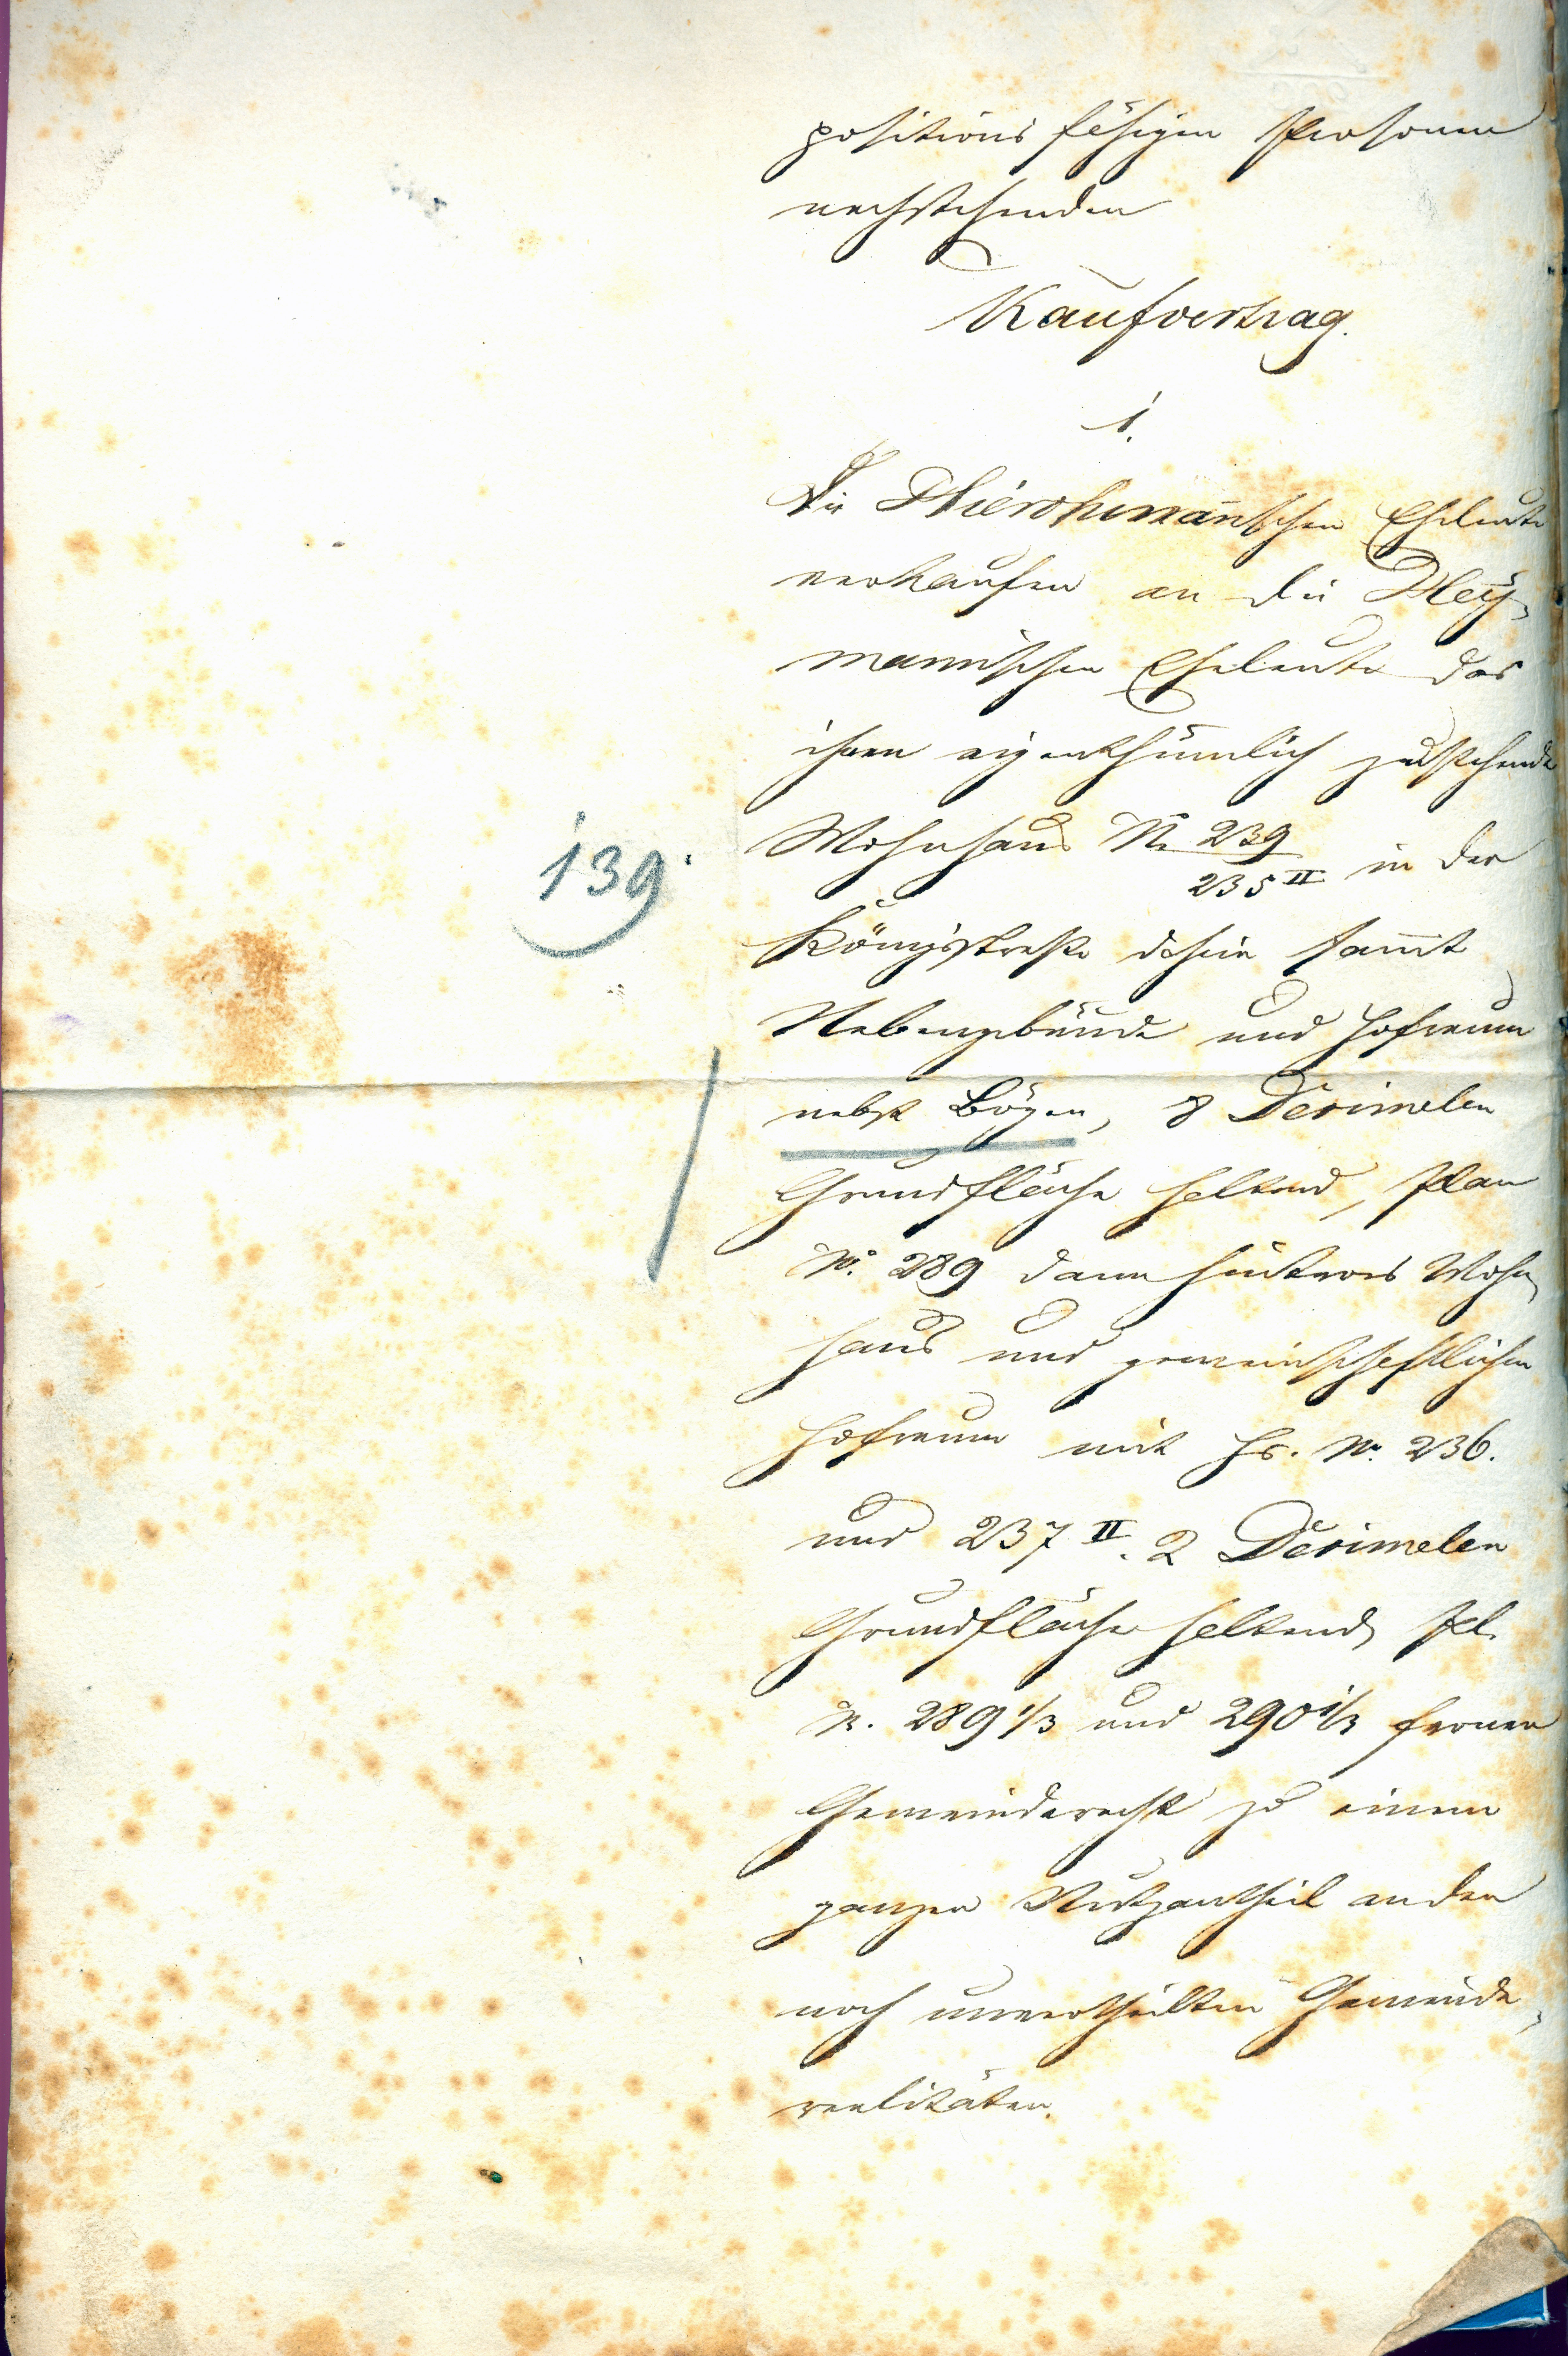 positionsfähigen Personen
nachstehenden
Kaufvertrag.
1.
Die Hierohmannschen Eheleute
verkaufen an die Hey-
mannischen Eheleute das
ihnen eigenthümlich zustehende
Wohnhaus No 239/235 II in der
139.
Königsstraße dahier sammt
Nebengebäude und Hofraum
nebst Bögen, 8 Dezimalen
Grundfläche haltend, Plan
No. 289 dann hinteres Wohn-
haus und gemeinschaftlichen
Hofraum mit Hs. No. 236.
und 237 II. 2 Dezimalen
Grundfläche haltend, Pl.
N. 289 1/3 und 290 1/3 ferner
Gemeinderecht zu einem
ganzen Nutzantheil an den
noch unvertheilten Gemeinde-
realitäten.